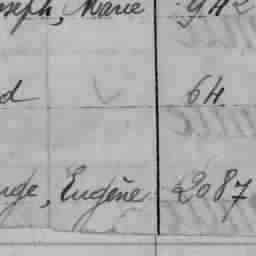 oseph, Marie 942
d 64
nge, Eugène 2087